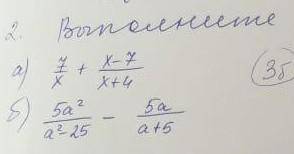 2. Выполните
а) 7/x + (x-7)/(x+4)
3б
б) 5a²/(a²-25) - 5a/(a+5)